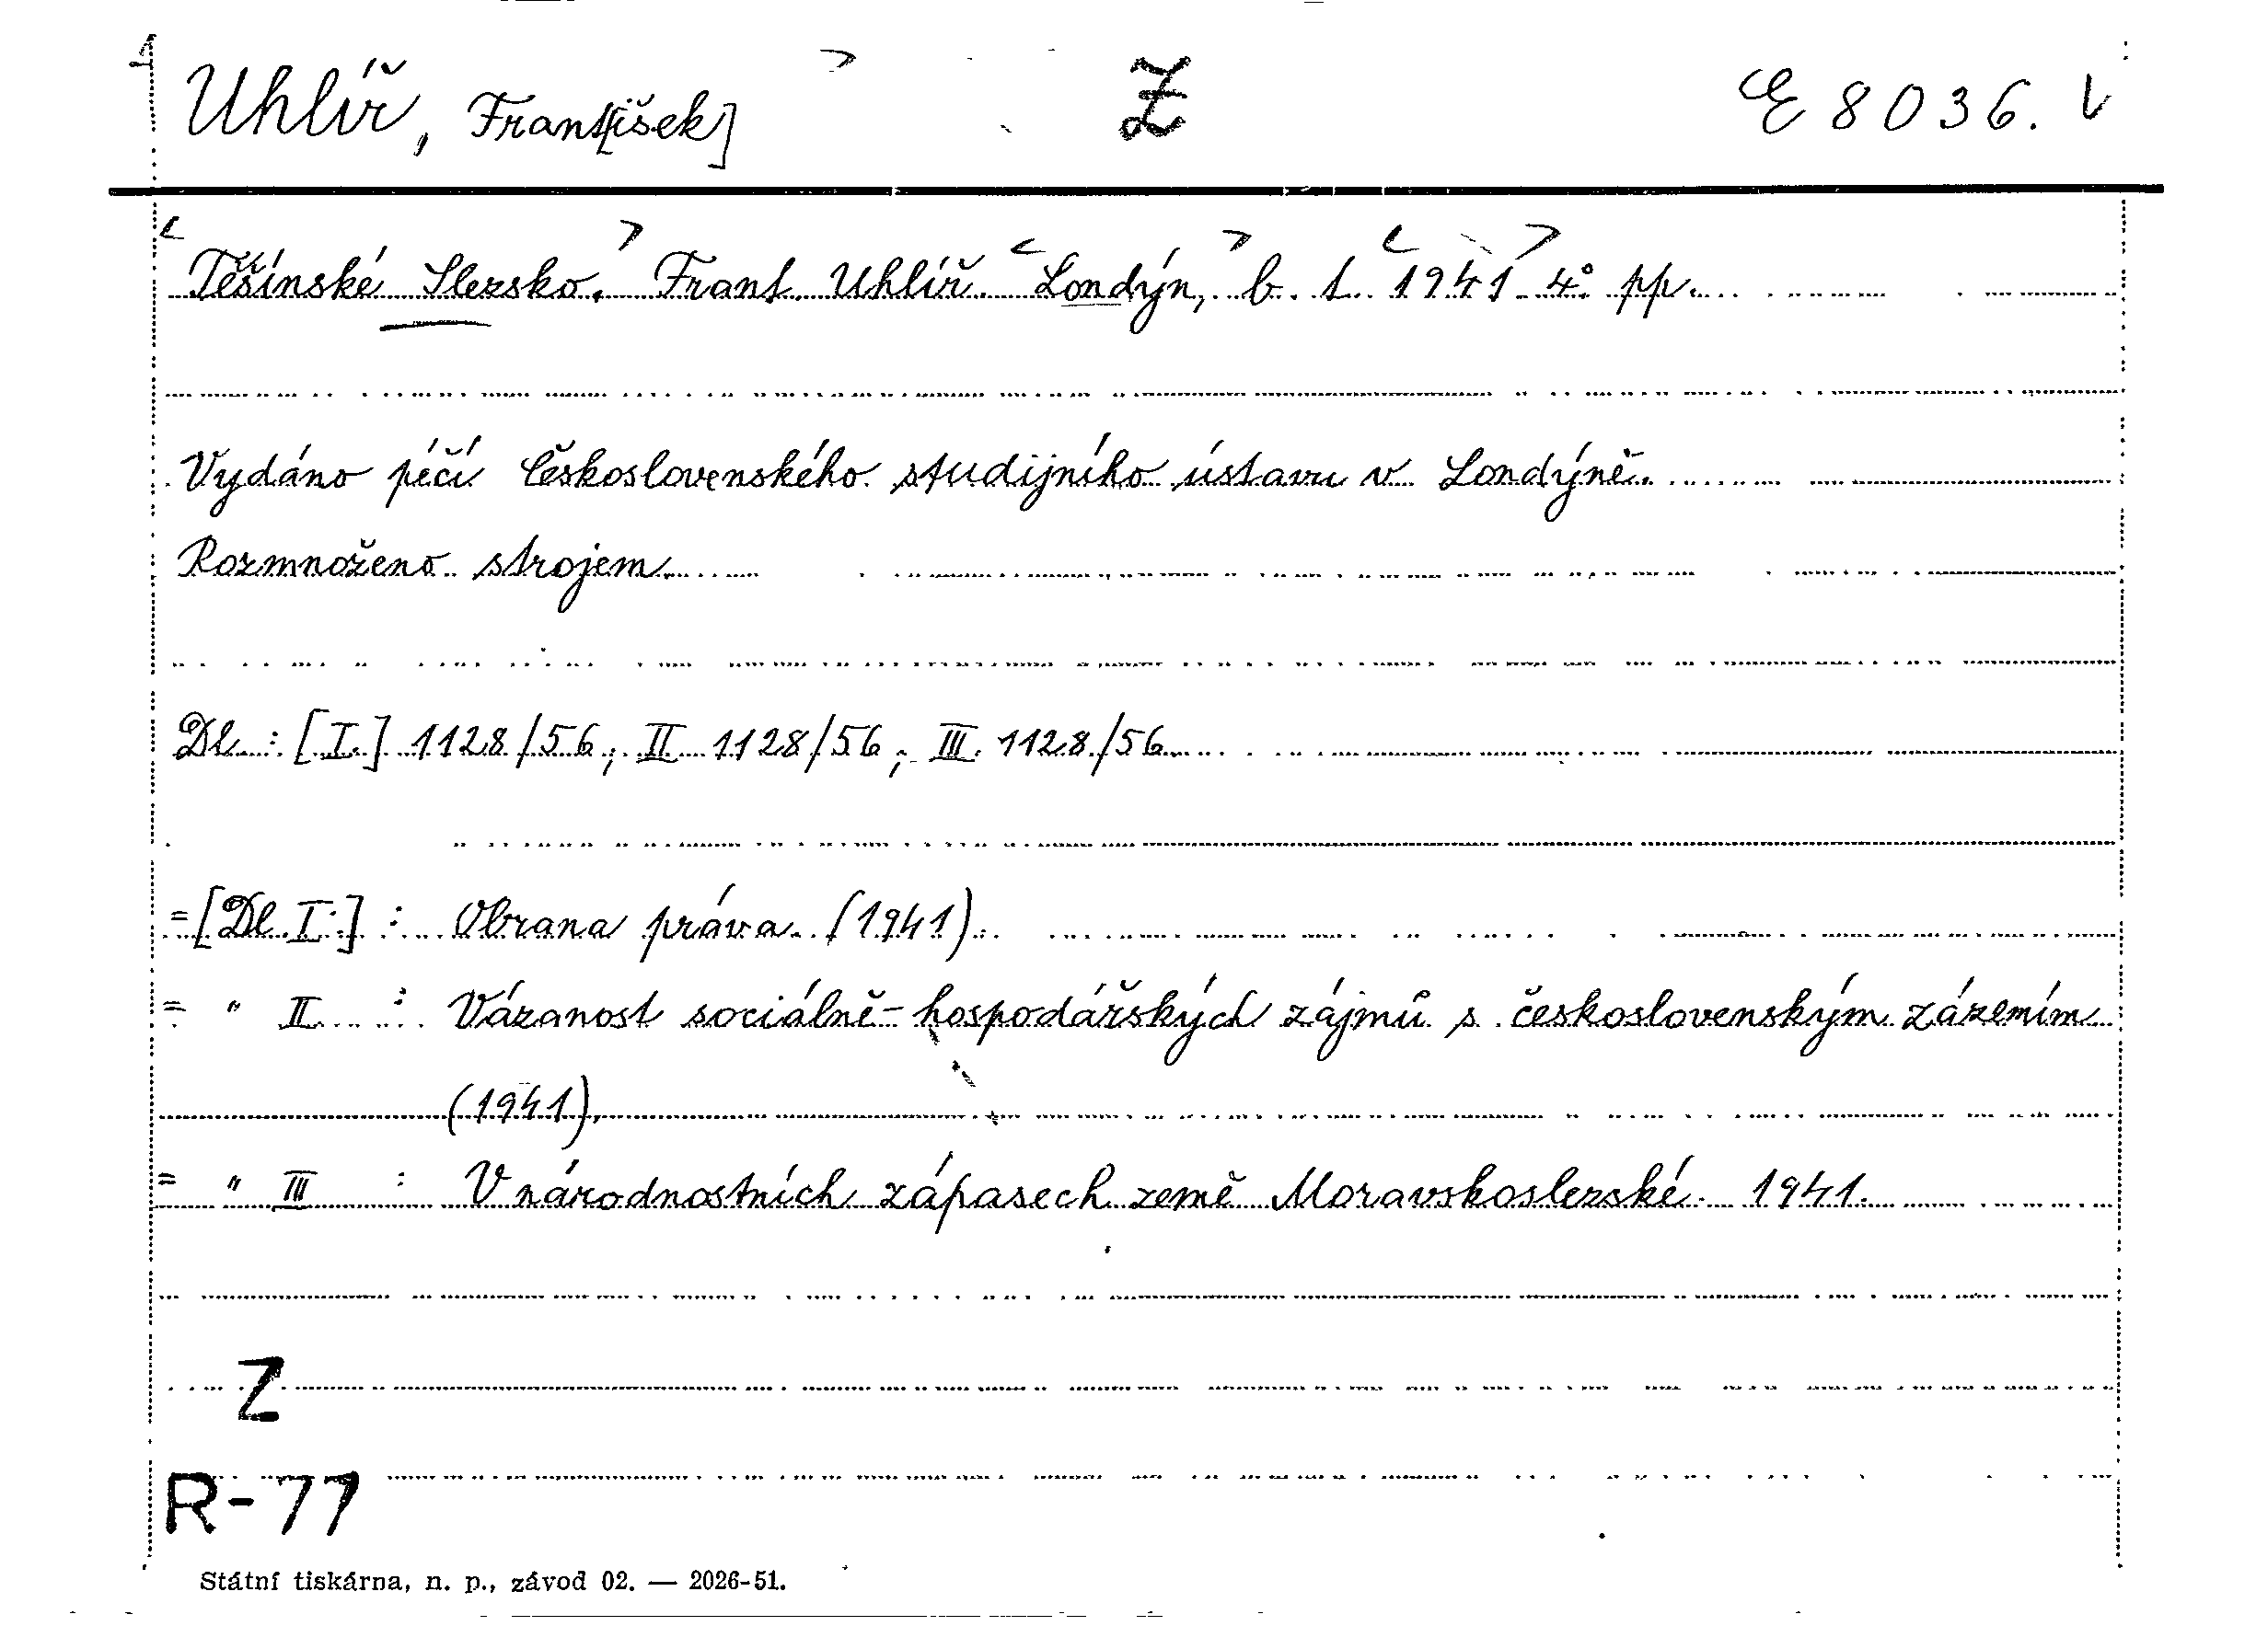 Uhlíř, Frant[išek] Z E 8036. V
Těšínské Slezsko. Frant. Uhlíř. Londýn, b. t. 1941 4° pp.
Vydáno péčí Československého studijního ústavu v Londýně.
Rozmnoženo strojem.
Dl. : [I.] 1128/56; II 1128/56; III. 1128/56
=[Dl. I.] : Obrana práva. (1941).
= " II : Vázanost sociálně-hospodářských zájmů s československým zázemím
(1941).
= " III : V národnostních zápasech země Moravskoslezské. 1941.
Z
R-77
Státní tiskárna, n. p., závod 02. — 2026-51.